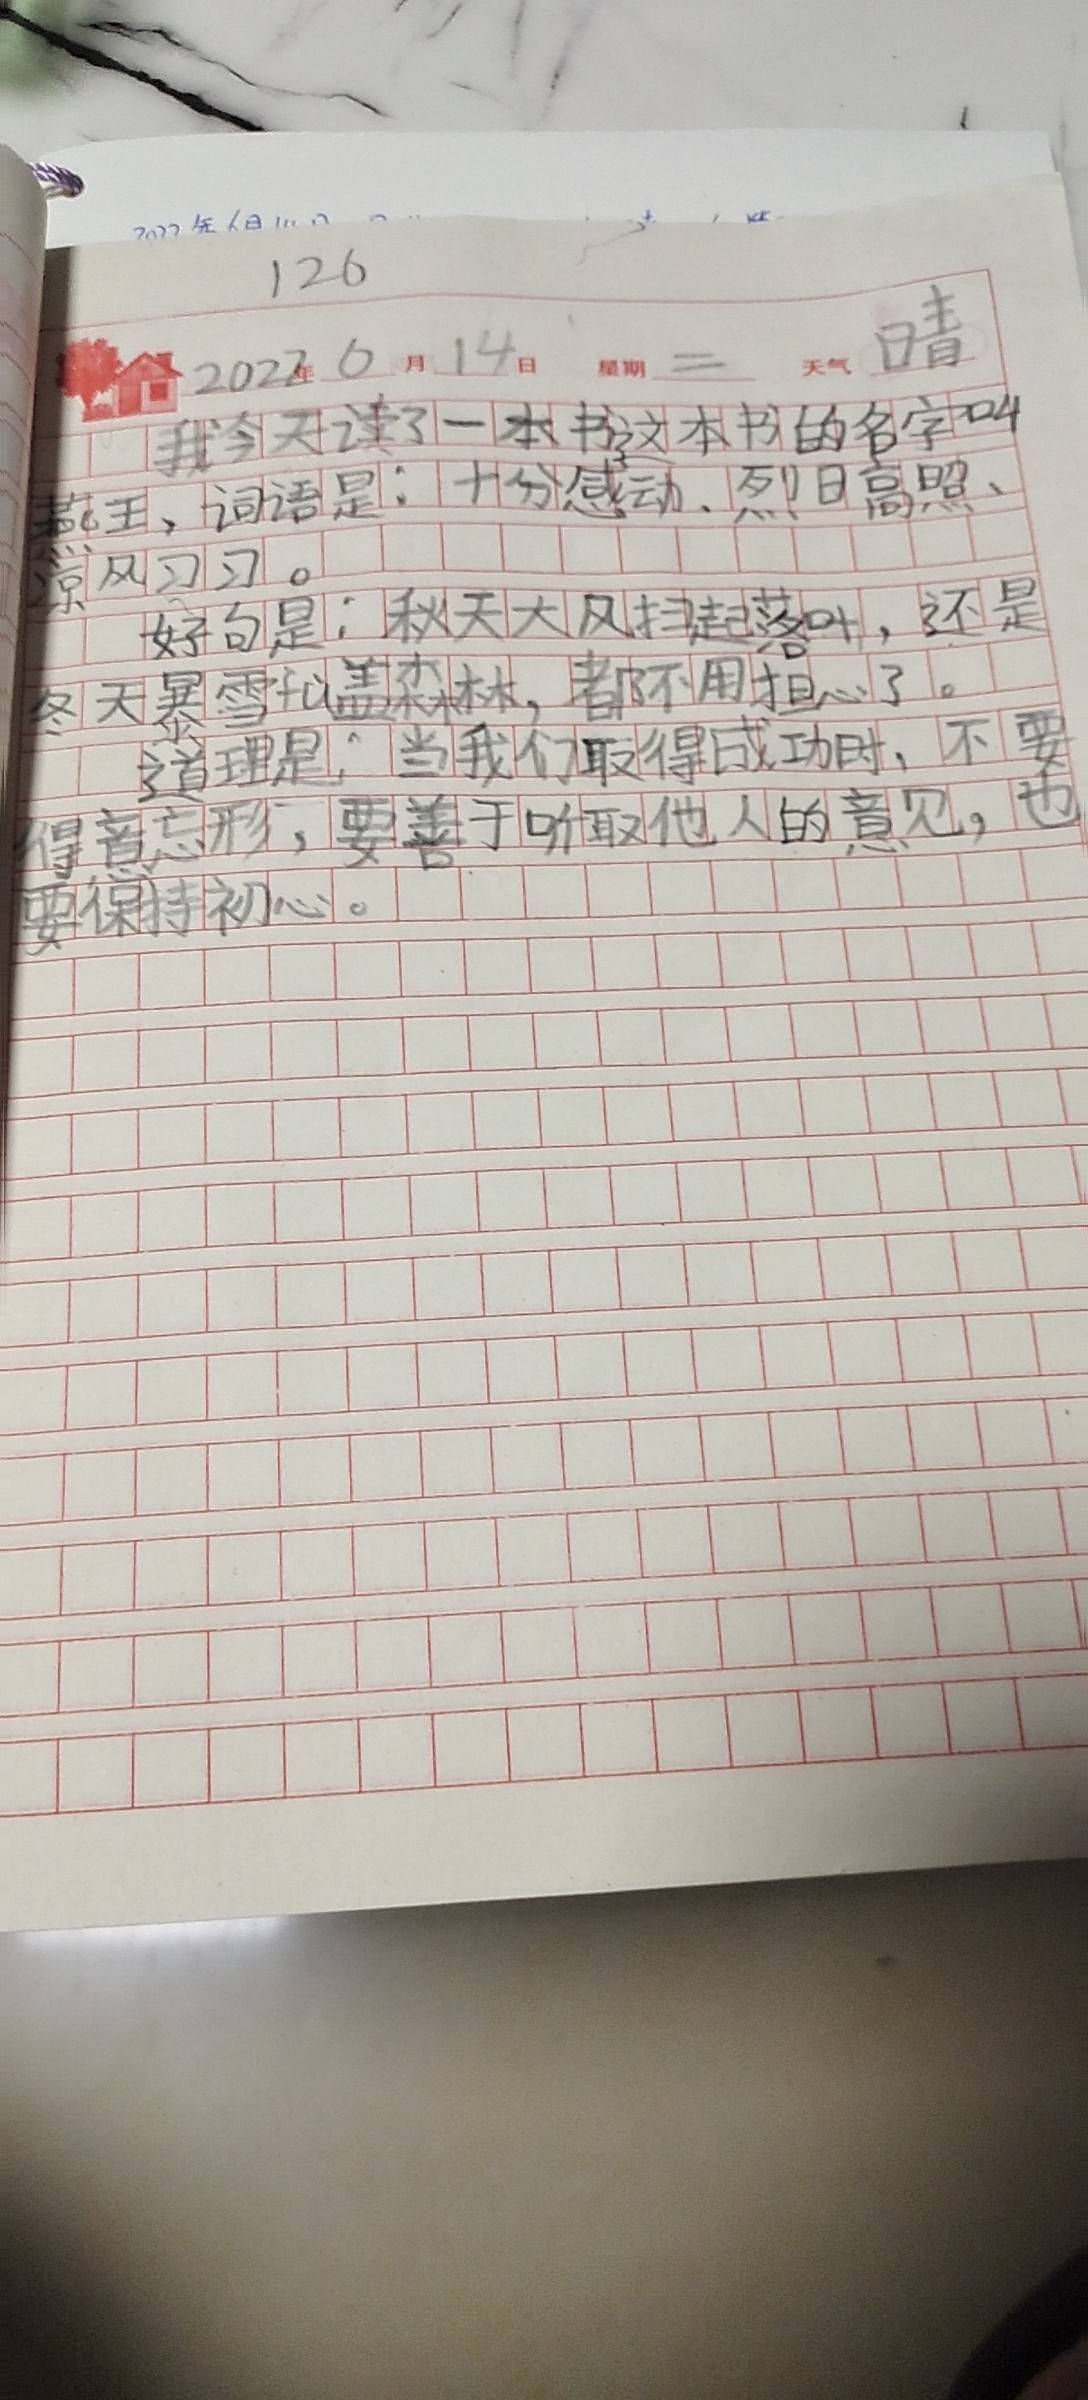 2022年6月14日
126
2022年 6 月 14 日 星期 二 天气 晴
我今天读了一本书这本书的名字叫
燕王、词语是：十分感动、烈日高照、
凉风习习。
好句是：秋天大风扫起落叶，还是
冬天暴雪扎盖森林，都不用担心了。
道理是：当我们取得成功时，不要
得意忘形，要善于听取他人的意见，也
要保持初心。